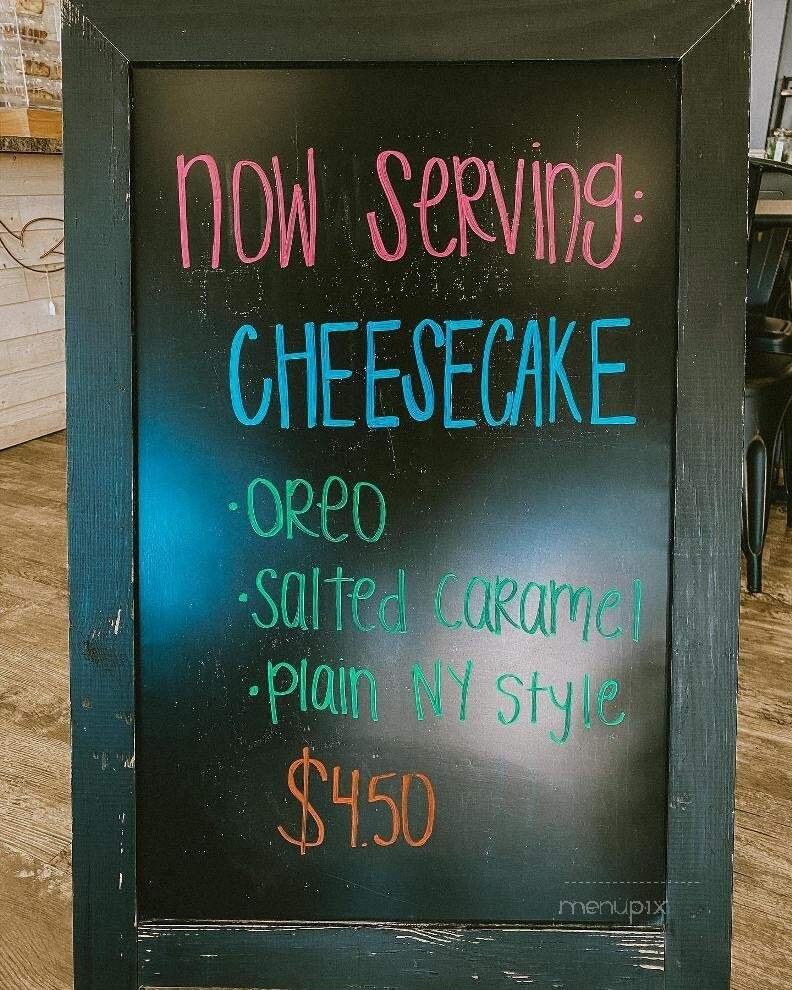 now serving:
CHEESECAKE
·OReo
·Salted CaRamel
·Plain NY Style
$4.50
menupix